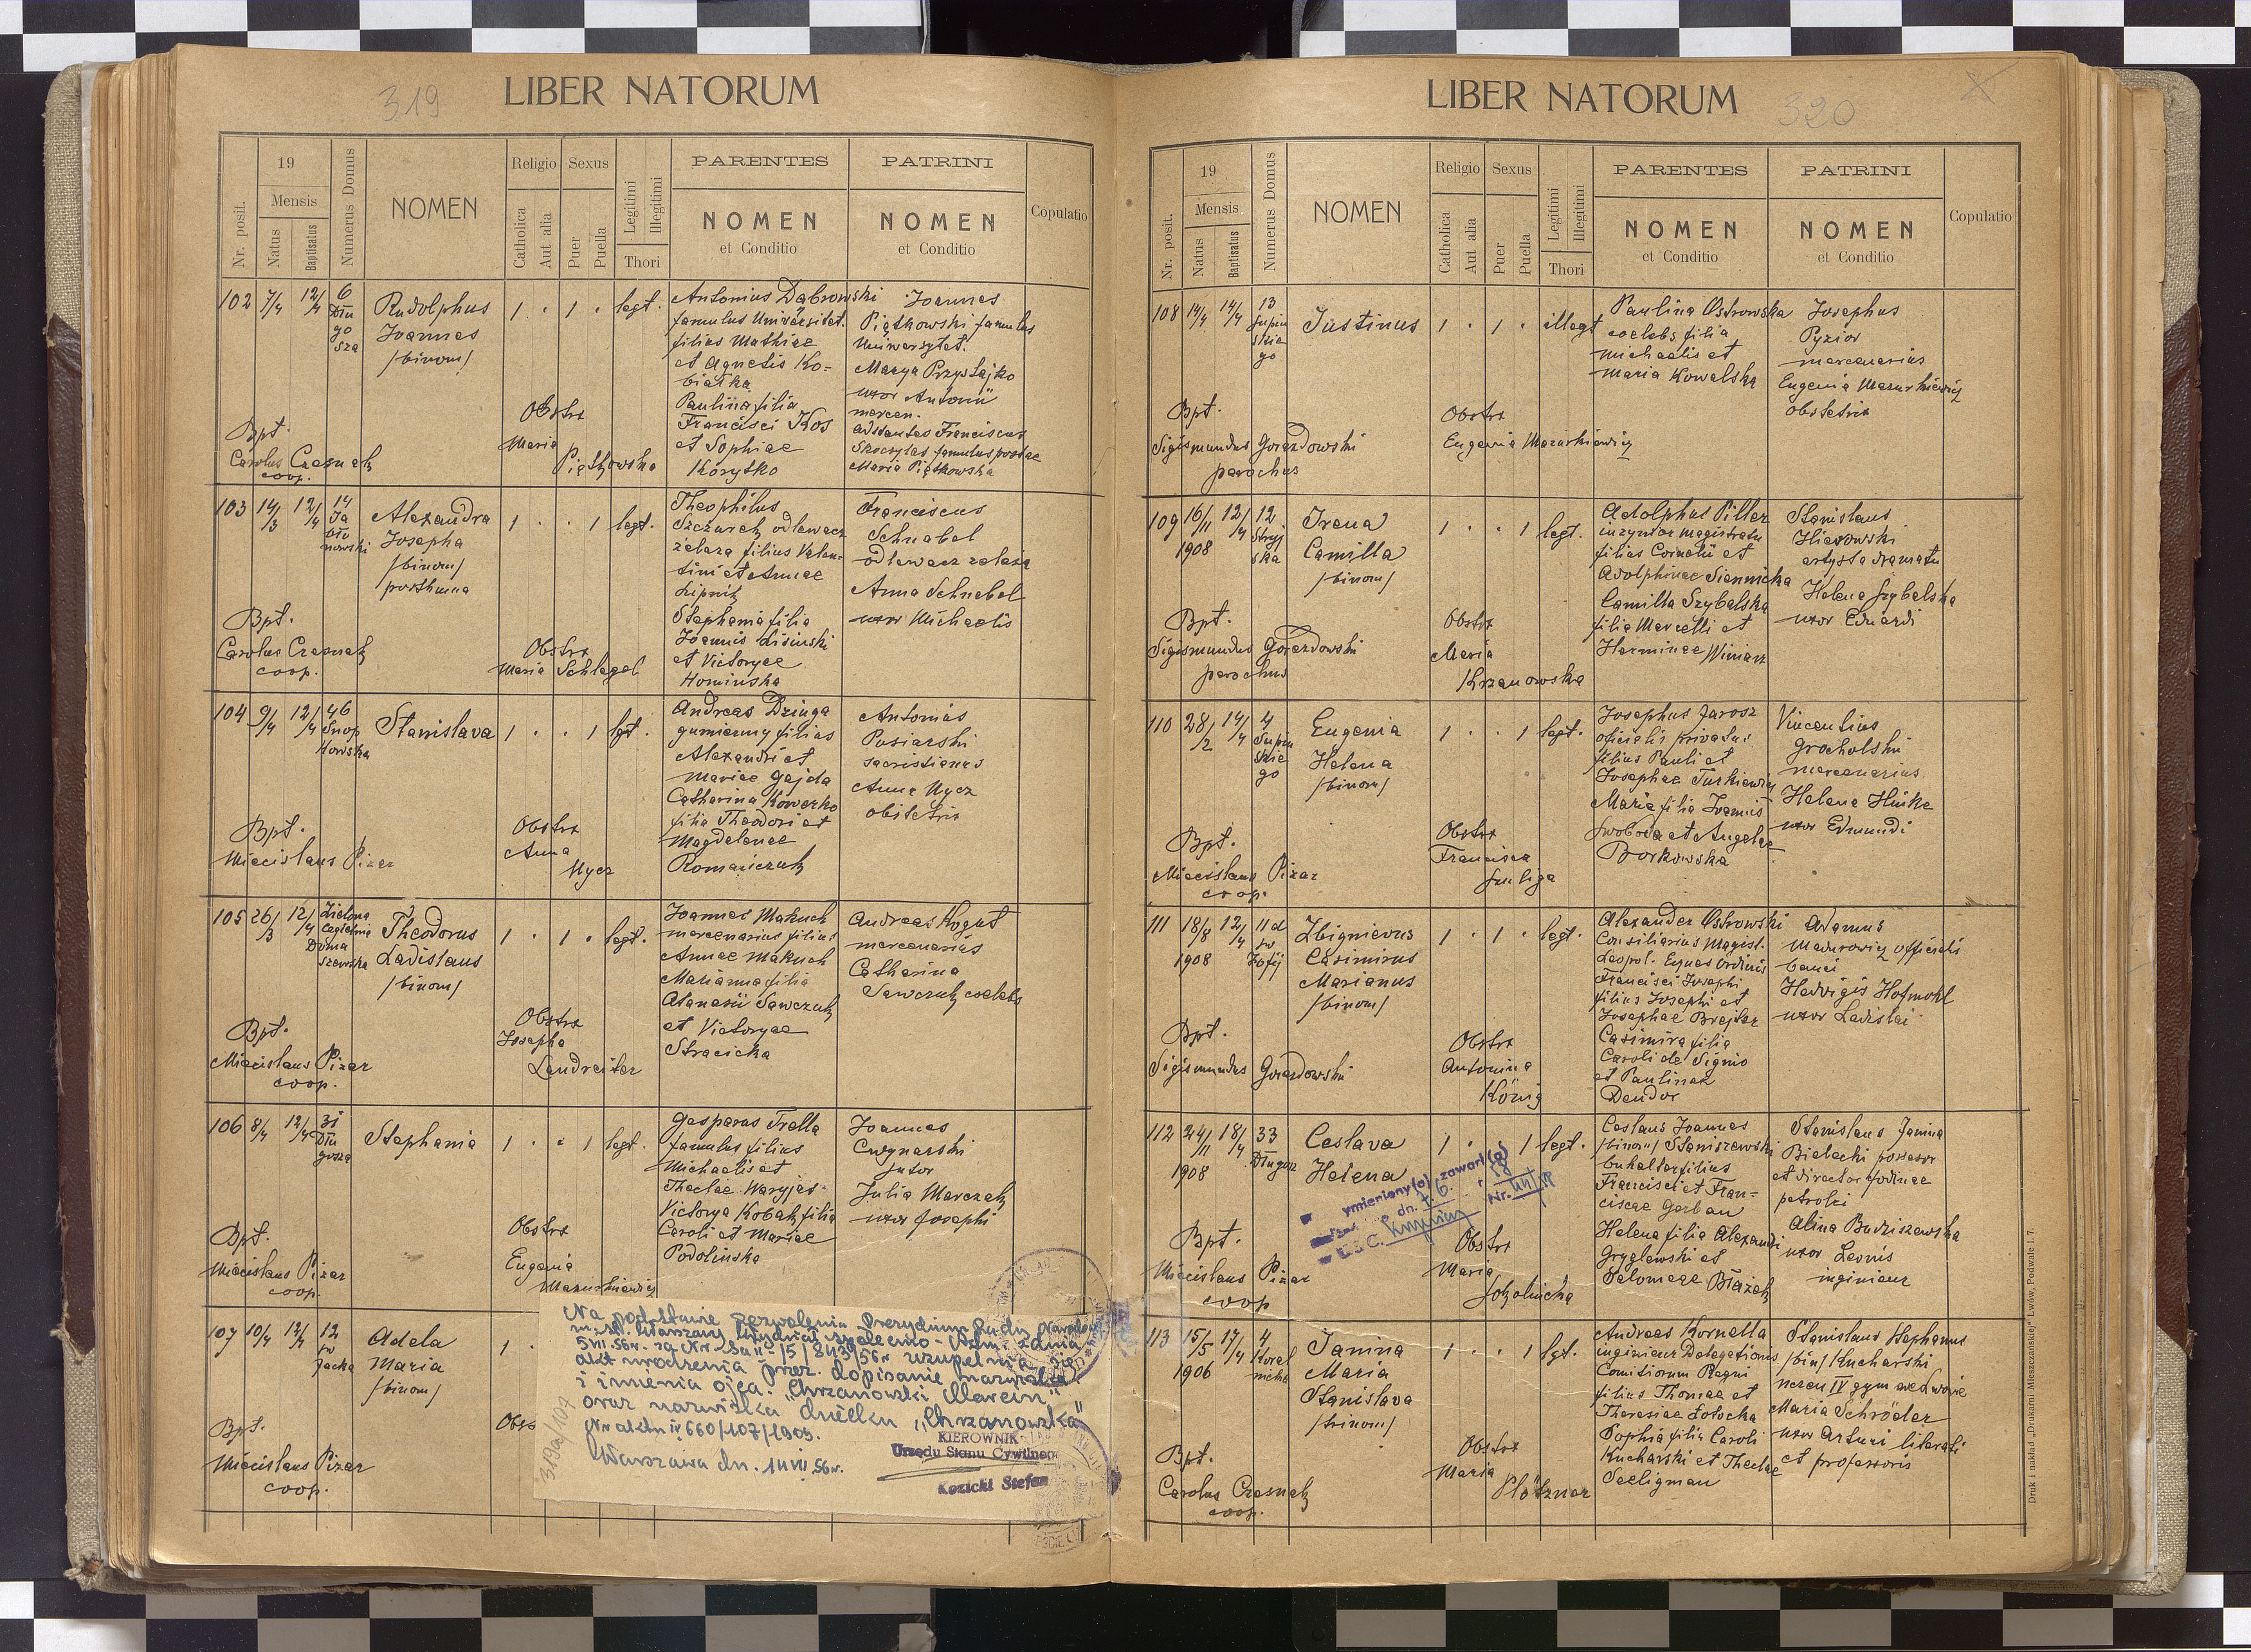 319
LIBER NATORUM
Nr. posit.
19
Mensis
Natus
Baptisatus
Numerus Domus
NOMEN
Religio
Catholica
Aut alia
Sexus
Puer
Puella
Legitimi
Illegitimi
Thori
PARENTES
NOMEN
et Conditio
PATRINI
NOMEN
et Conditio
Copulatio
102 7/4 12/4 6
Dłu
go
sza
Rudolphus
Joannes
/binom/
1 · 1 · legt.
Antonius Dąbrowski
famulus Universitat.
filius Mathiae
et Agnetis Ko-
białka
Paulina filia
Francisci Kos
et Sophiae
Korytko
Joannes
Piątkowski famulus
Uniwersytet.
Marya Przystajko
uxor Antonii
mercen.
adstantes Franciscus
famulus postae
Maria Piątkowska
Obstrx
Maria
Piątkowska
Bpt.
Carolus Czesnak
coop.
103 14/3 12/4 14
Ja
bło
nowski
Alexandra
Josepha
/binom/
posthuma
1 · · 1 legt.
Theophilus
Szczurek odlewacz
żelaza filius Valen-
tini et Annae
Lipnik
Stephania filia
Joannis Lisinski
et Victoryae
Hominska
Franciscus
Schnabel
odlewacz żelaza
Anna Schnebel
uxor Michaelis
Obstrx
Maria Schlagel
Bpt.
Carolus Czesnak
coop.
104 9/4 12/4 46
Snop
kowska
Stanislava
1 · · 1 lgt.
Andreas Dzinga
gumienny filius
Alexandri et
Mariae Gajda
Catharina Kowerko
filia Theodori et
Magdalenae
Romańczuk
Antonius
Pusiarski
sacristianus
Anna Nycz
obstetrix
Obstrx
Anna
Nycz
Bpt.
Miecislaus Pizar
105 26/3 12/4 Zielona
Cegielnia
Doma
szewska
Theodorus
Ladislaus
/binom/
1 · 1 · legt.
Joannes Makuch
mercenarius filius
Annae Makuch
Marianna filia
Atanasii Sawczuk
et Victoryae
Stracicka
Andreas Kogut
mercenarius
Catharina
Sawczuk coelebs
Obstrx
Josepha
Landreiter
Bpt.
Miecislaus Pizar
coop.
106 8/4 12/4 31
Dłu
gosza
Stephania
1 · · 1 legt.
Gasparus Trella
famulus filius
Michaelis et
Theclae Waryjas
Victorya Kobak filia
Caroli et Mariae
Podolinska
Joannes
Cwynarski
sutor
Julia Marczak
uxor Josephi
Obstrx
Eugenia
Mazurkiewicz
Bpt.
Miecislaus Pizar
coop.
107 10/4 12/4 12
św
Jacka
Adela
Maria
/binom/
1 ·
Obs
Bpt.
Miecislaus Pizar
coop.
Na podstawie zezwolenia Prezydium Rady Narodow.
m. st. Warszawy
5 VII. 56 r. za Nr. 5/843/56r. uzupełnia się
akt urodzenia przez dopisanie nazwiska
i imienia ojca: "Chrzanowski Marcin"
oraz nazwiska dziecka "Chrzanowska"
Nr aktu IV 660/107/1909.
Warszawa dn. 14 VII 56r.
319a/107
KIEROWNIK
Urzędu Stanu Cywilnego
Kozicki Stefan
320
LIBER NATORUM
Nr. posit.
19
Mensis
Natus
Baptisatus
Numerus Domus
NOMEN
Religio
Catholica
Aut alia
Sexus
Puer
Puella
Legitimi
Illegitimi
Thori
PARENTES
NOMEN
et Conditio
PATRINI
NOMEN
et Conditio
Copulatio
108 14/4 14/4 13
Supiń
skie
go
Justinus
1 · 1 · illegt
Paulina Ostrowska
coelebs filia
Michaelis et
Maria Kowalska
Josephus
Pyzior
mercenarius
Eugenia Mazurkiewicz
obstetrix
Obstrx
Eugenia Mazurkiewicz
Bpt.
Sigismundus Gorazdowski
parochus
109 16/11 12/4 12
1908
Stryj
ska
Irena
Camilla
/binom/
1 · · 1 legt.
Adolphus Piller
inzynier magistratu
filius Cornelii et
Adolphinae Siennicka
Camilla Szybalska
filia Marcelli et
Herminae Winiarz
Stanislaus
Hierowski
artysta dramatu
Helena Szybalska
uxor Eduardi
Obstrx
Maria
Krzanowska
Bpt.
Sigismundus Gorazdowski
parochus
110 28/2 14/4 4
Supiń
skie
go
Eugenia
Helena
/binom/
1 · · 1 legt.
Josephus Jarosz
oficialis privatus
filius Pauli et
Josephae Turkiewicz
Maria filia Joannis
Swoboda et Angelae
Borkowska
Vincentius
Grocholski
mercenarius
Helena Hinke
uxor Edmundi
Obstrx
Francisca
Suliga
Bpt.
Miecislaus Pizar
coop.
111 18/8 12/4 11 d
1908
św
Zofij
Zbignievus
Casimirus
Marianus
/binom/
1 · 1 · legt.
Alexander Ostrowski
Consiliarius Magist.
Leopol. Eques Ordinis
Francisci Josephi
filius Josephi et
Josephae Brejter
Casimira filia
Caroli de Signio
et Paulinae
Dendor
Adamus
Madurowicz officialis
banci
Hedvigis Hofmokl
uxor Ladislai
Obstrx
Antonina
König
Bpt.
Sigismundus Gorazdowski
112 24/11 18/4 33
1908
Długosz
Ceslava
Helena
1 · 1 legt.
Ceslaus Joannes
/binom/ Staniszewski
buhalter filius
Francisci et Fran-
ciscae Gorban
Helena filia Alexandri
Gryglewski et
Salomeae Błażek
Stanislaus Janina
Bielecki possesor
et director fodinae
petrolei
Alina Budziszewska
uxor Leonis
inginieur
ymieniony(a) zawarł(a)
dn.
Nr.
U.S.C.
Obstrx
Maria
Sokolnicka
Bpt.
Miecislaus Pizar
coop
113 15/5 17/4 4
1906
Koral
nicka
Janina
Maria
Stanislava
/trinom/
1 · · 1 lgt.
Andreas Kornella
inginieur Delegationis
Comitiorum Regni
filius Thomae et
Theresiae Łotocka
Sophia filia Caroli
Kucharski et Theclae
Seeligman
Stanislaus Stephanus
/bin/ Kucharski
IV gym we Lwowie
Maria Schröder
uxor Arturi literati
et professoris
Obstrx
Maria
Plötzner
Bpt.
Carolus Czesnak
coop.
Druk i nakład „Drukarni Mieszczańskiej" Lwów, Podwale l. 7.